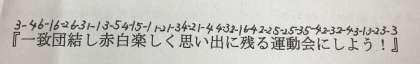 3-46-16-26-31-13-54-15-11-21-34-21-44-32-16-42-25-25-35-42-32-43-13-23-3
『一致団結し赤白楽しく思い出に残る運動会にしよう！』